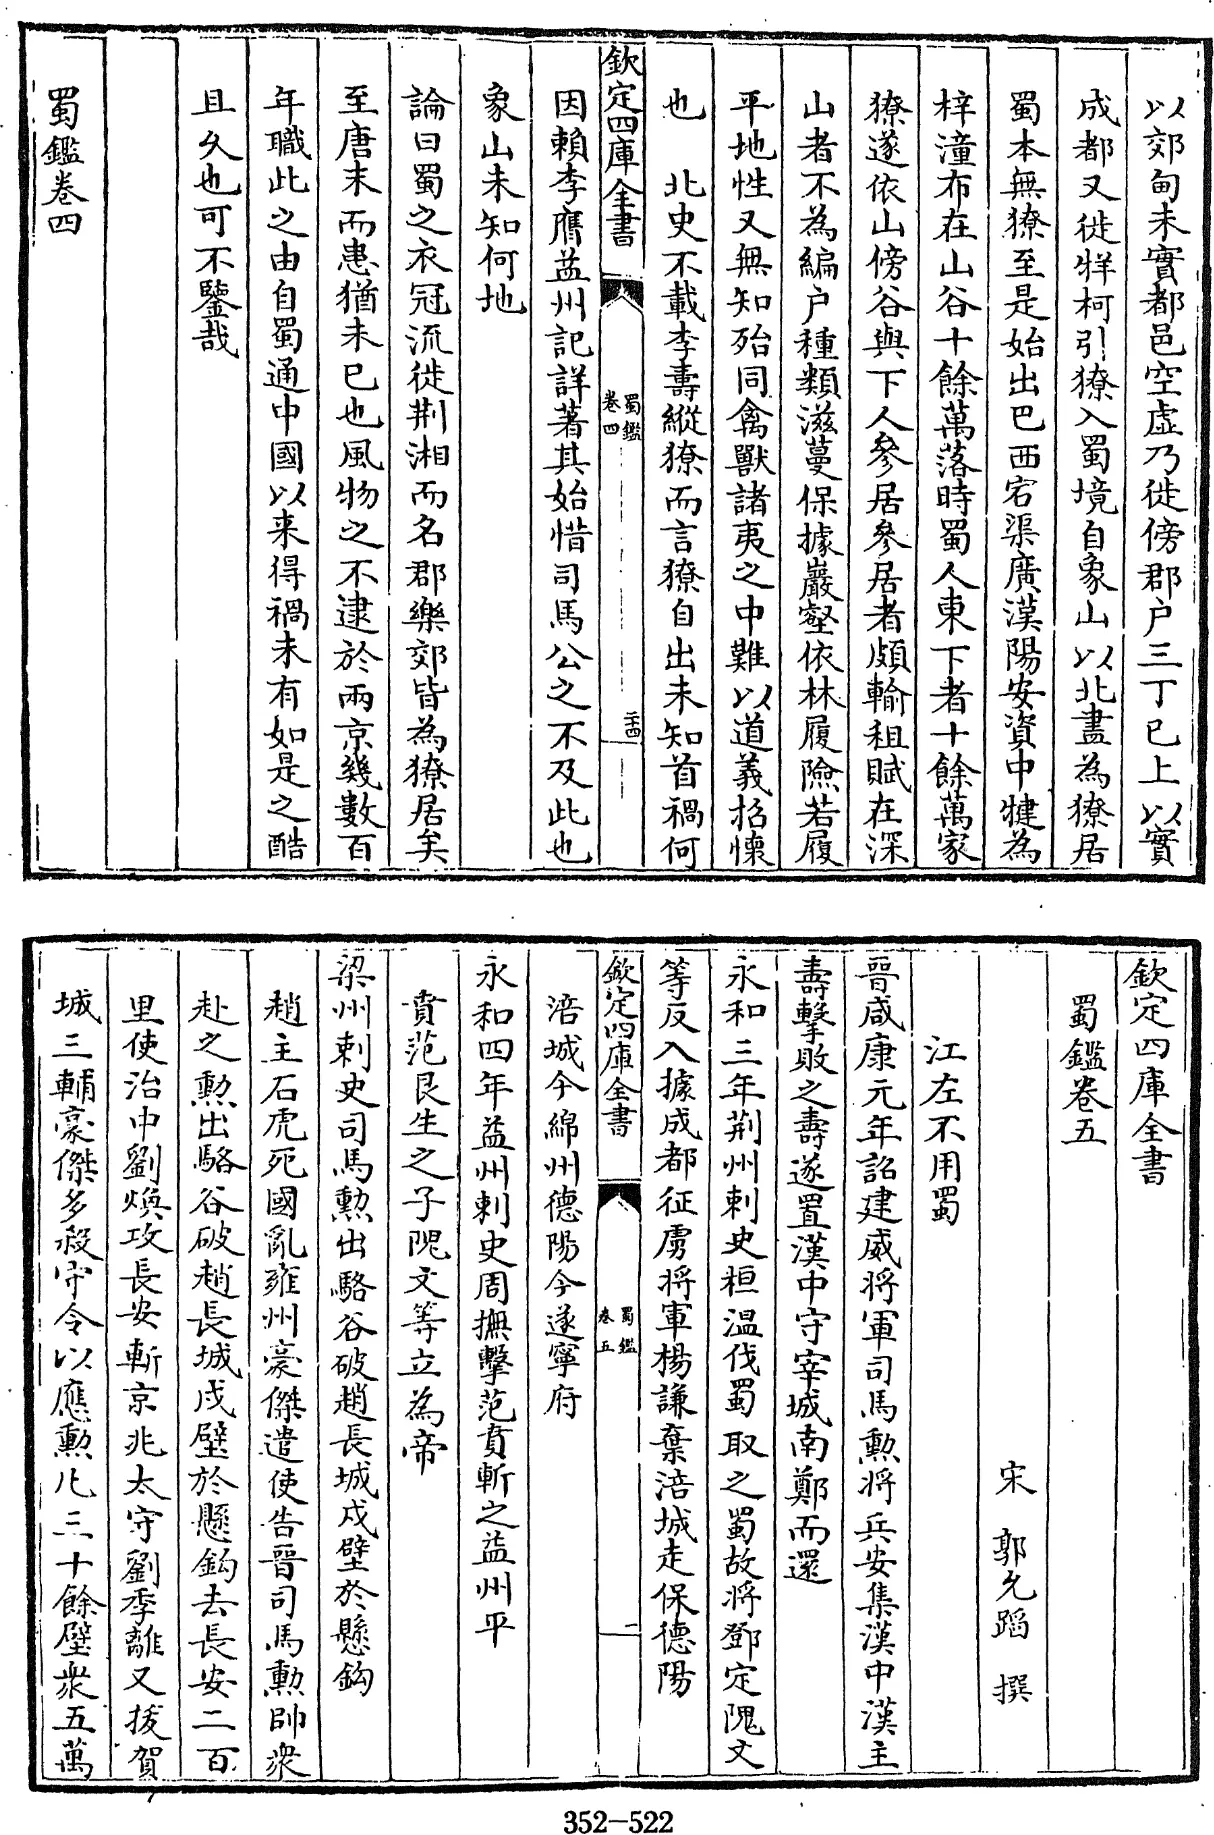 以郊甸未實都邑空虛乃徙傍郡户三丁已上以實
成都又徙牂柯引獠入蜀境自象山以北盡為獠居
蜀本無獠至是始出巴西宕渠廣漢陽安資中犍為
梓潼布在山谷十餘萬落時蜀人東下者十餘萬家
獠遂依山傍谷與下人參居參居者頗輸租賦在深
山者不為編户種類滋蔓保據巖壑依林履險若履
平地性又無知殆同禽獸諸夷之中難以道義招懷
也　北史不載李壽縱獠而言獠自出未知首禍何
欽定四庫全書
蜀鑑
卷四
二十四
因賴李膺益州記詳著其始惜司馬公之不及此也
象山未知何地
論曰蜀之衣冠流徙荆湘而名郡樂郊皆為獠居矣
至唐末而患猶未已也風物之不逮於兩京幾數百
年職此之由自蜀通中國以来得禍未有如是之酷
且久也可不鑒哉
蜀鑑卷四
欽定四庫全書
蜀鑑卷五
宋　郭允蹈　撰
江左不用蜀
晉咸康元年詔建威将軍司馬勲将兵安集漢中漢主
壽擊敗之壽遂置漢中守宰城南鄭而還
永和三年荆州刺史桓溫伐蜀取之蜀故将鄧定隗文
等反入據成都征虜将軍楊謙棄涪城走保德陽
欽定四庫全書
蜀鑑
卷五
一
涪城今綿州德陽今遂寧府
永和四年益州刺史周撫擊范賁斬之益州平
賁范艮生之子隗文等立為帝
梁州刺史司馬勲出駱谷破趙長城戍壁於懸鈎
趙主石虎死國亂雍州豪傑遣使告晉司馬勲帥衆
赴之勲出駱谷破趙長城戍壁於懸鈎去長安二百
里使治中劉煥攻長安斬京兆太守劉季離又拔賀
城三輔豪傑多殺守令以應勲凡三十餘壁衆五萬
352-522